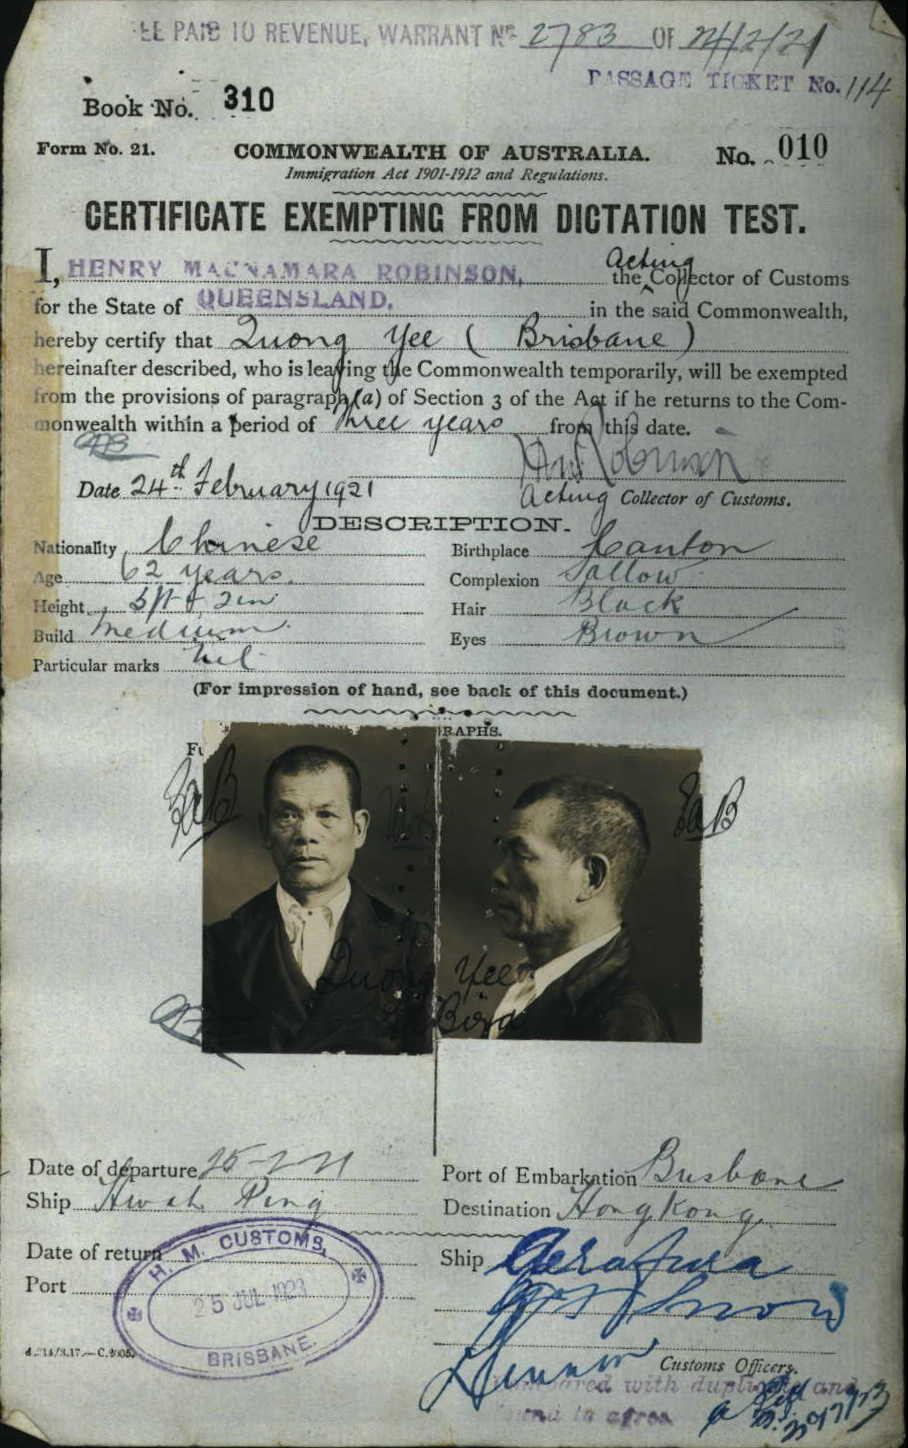 EE PAID TO REVENUE, WARRANT No 2783 OF 24/2/21
PASSAGE TICKET No. 114
Book No. 310
Form No. 21.
COMMONWEALTH OF AUSTRALIA.
No. 010
Immigration Act 1901-1912 and Regulations.
CERTIFICATE EXEMPTING FROM DICTATION TEST.
I, HENRY MACNAMARA ROBINSON, the Acting Collector of Customs
for the State of QUEENSLAND. in the said Commonwealth,
hereby certify that Quong Yee (Brisbane)
hereinafter described, who is leaving the Commonwealth temporarily, will be exempted
from the provisions of paragraph (a) of Section 3 of the Act if he returns to the Com-
monwealth within a period of Three years from this date.
HM Robinson
Date 24th February 1921
Acting Collector of Customs.
DESCRIPTION.
Nationality Chinese
Birthplace Canton
Age 62 years.
Complexion Sallow
Height 5ft 2in
Hair Black
Build Medium
Eyes Brown
Particular marks nil
(For impression of hand, see back of this document.)
RAPHS.
Quong Yee
Date of departure 25-2-21
Port of Embarkation Brisbane
Ship Hwah Ping
Destination Hong Kong
Date of return
Ship Arafura
Port
H. M. CUSTOMS,
25 JUL 1923
BRISBANE.
Customs Officers.
Compared with duplicate and
found to agree